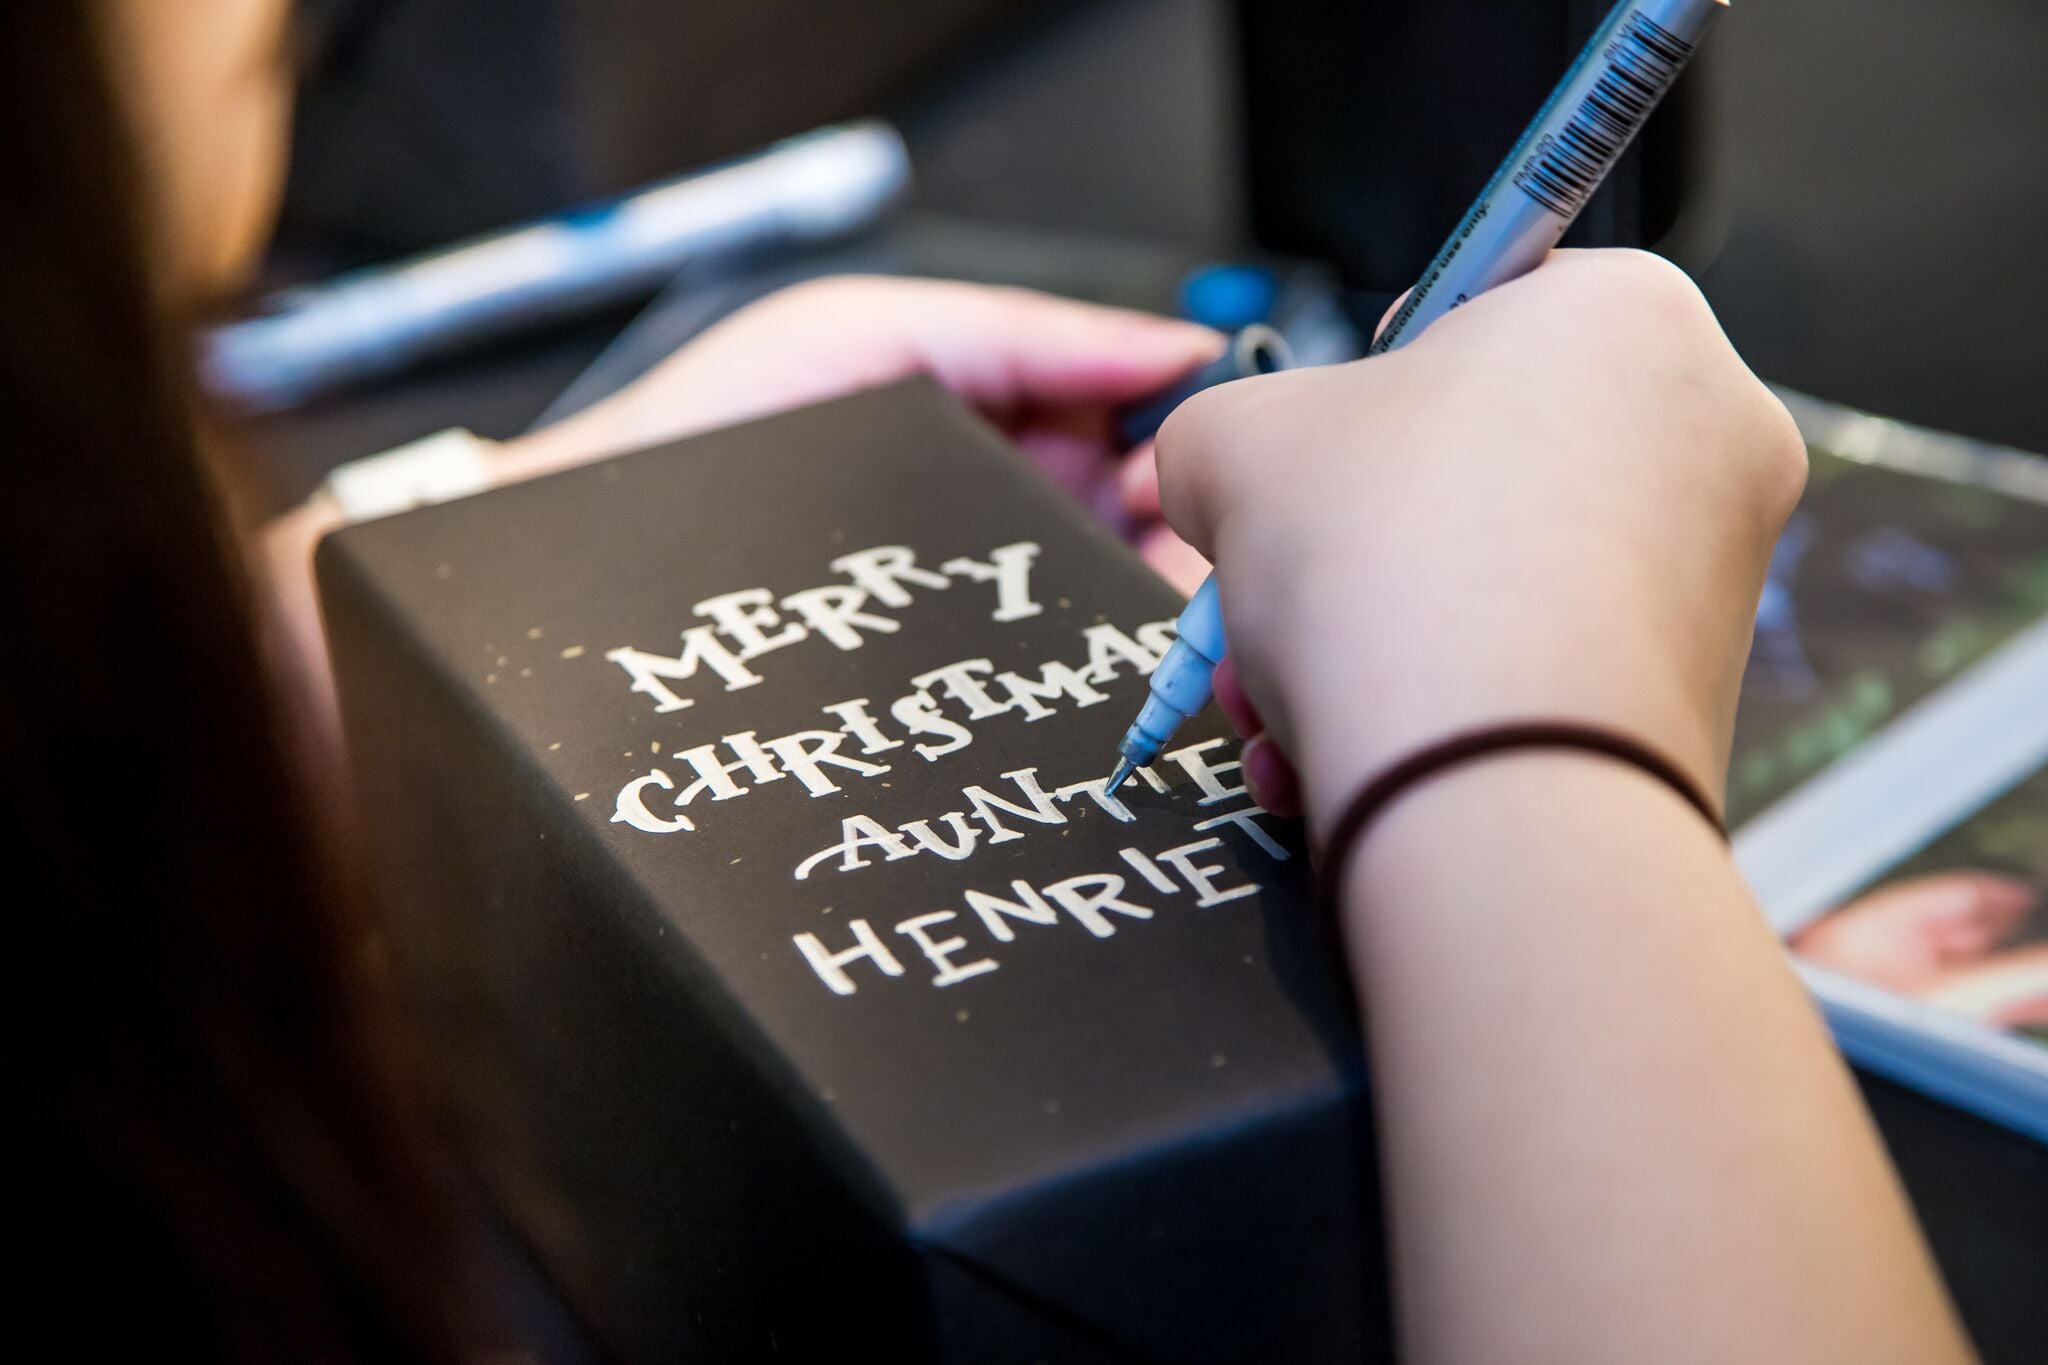 MERRY
CHRISTMAS
AUNTIE
HENRIET
decorative use only.